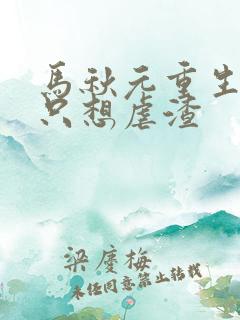 馬秋元重生
只想虐渣
梁慶梅
未经同意禁止转载